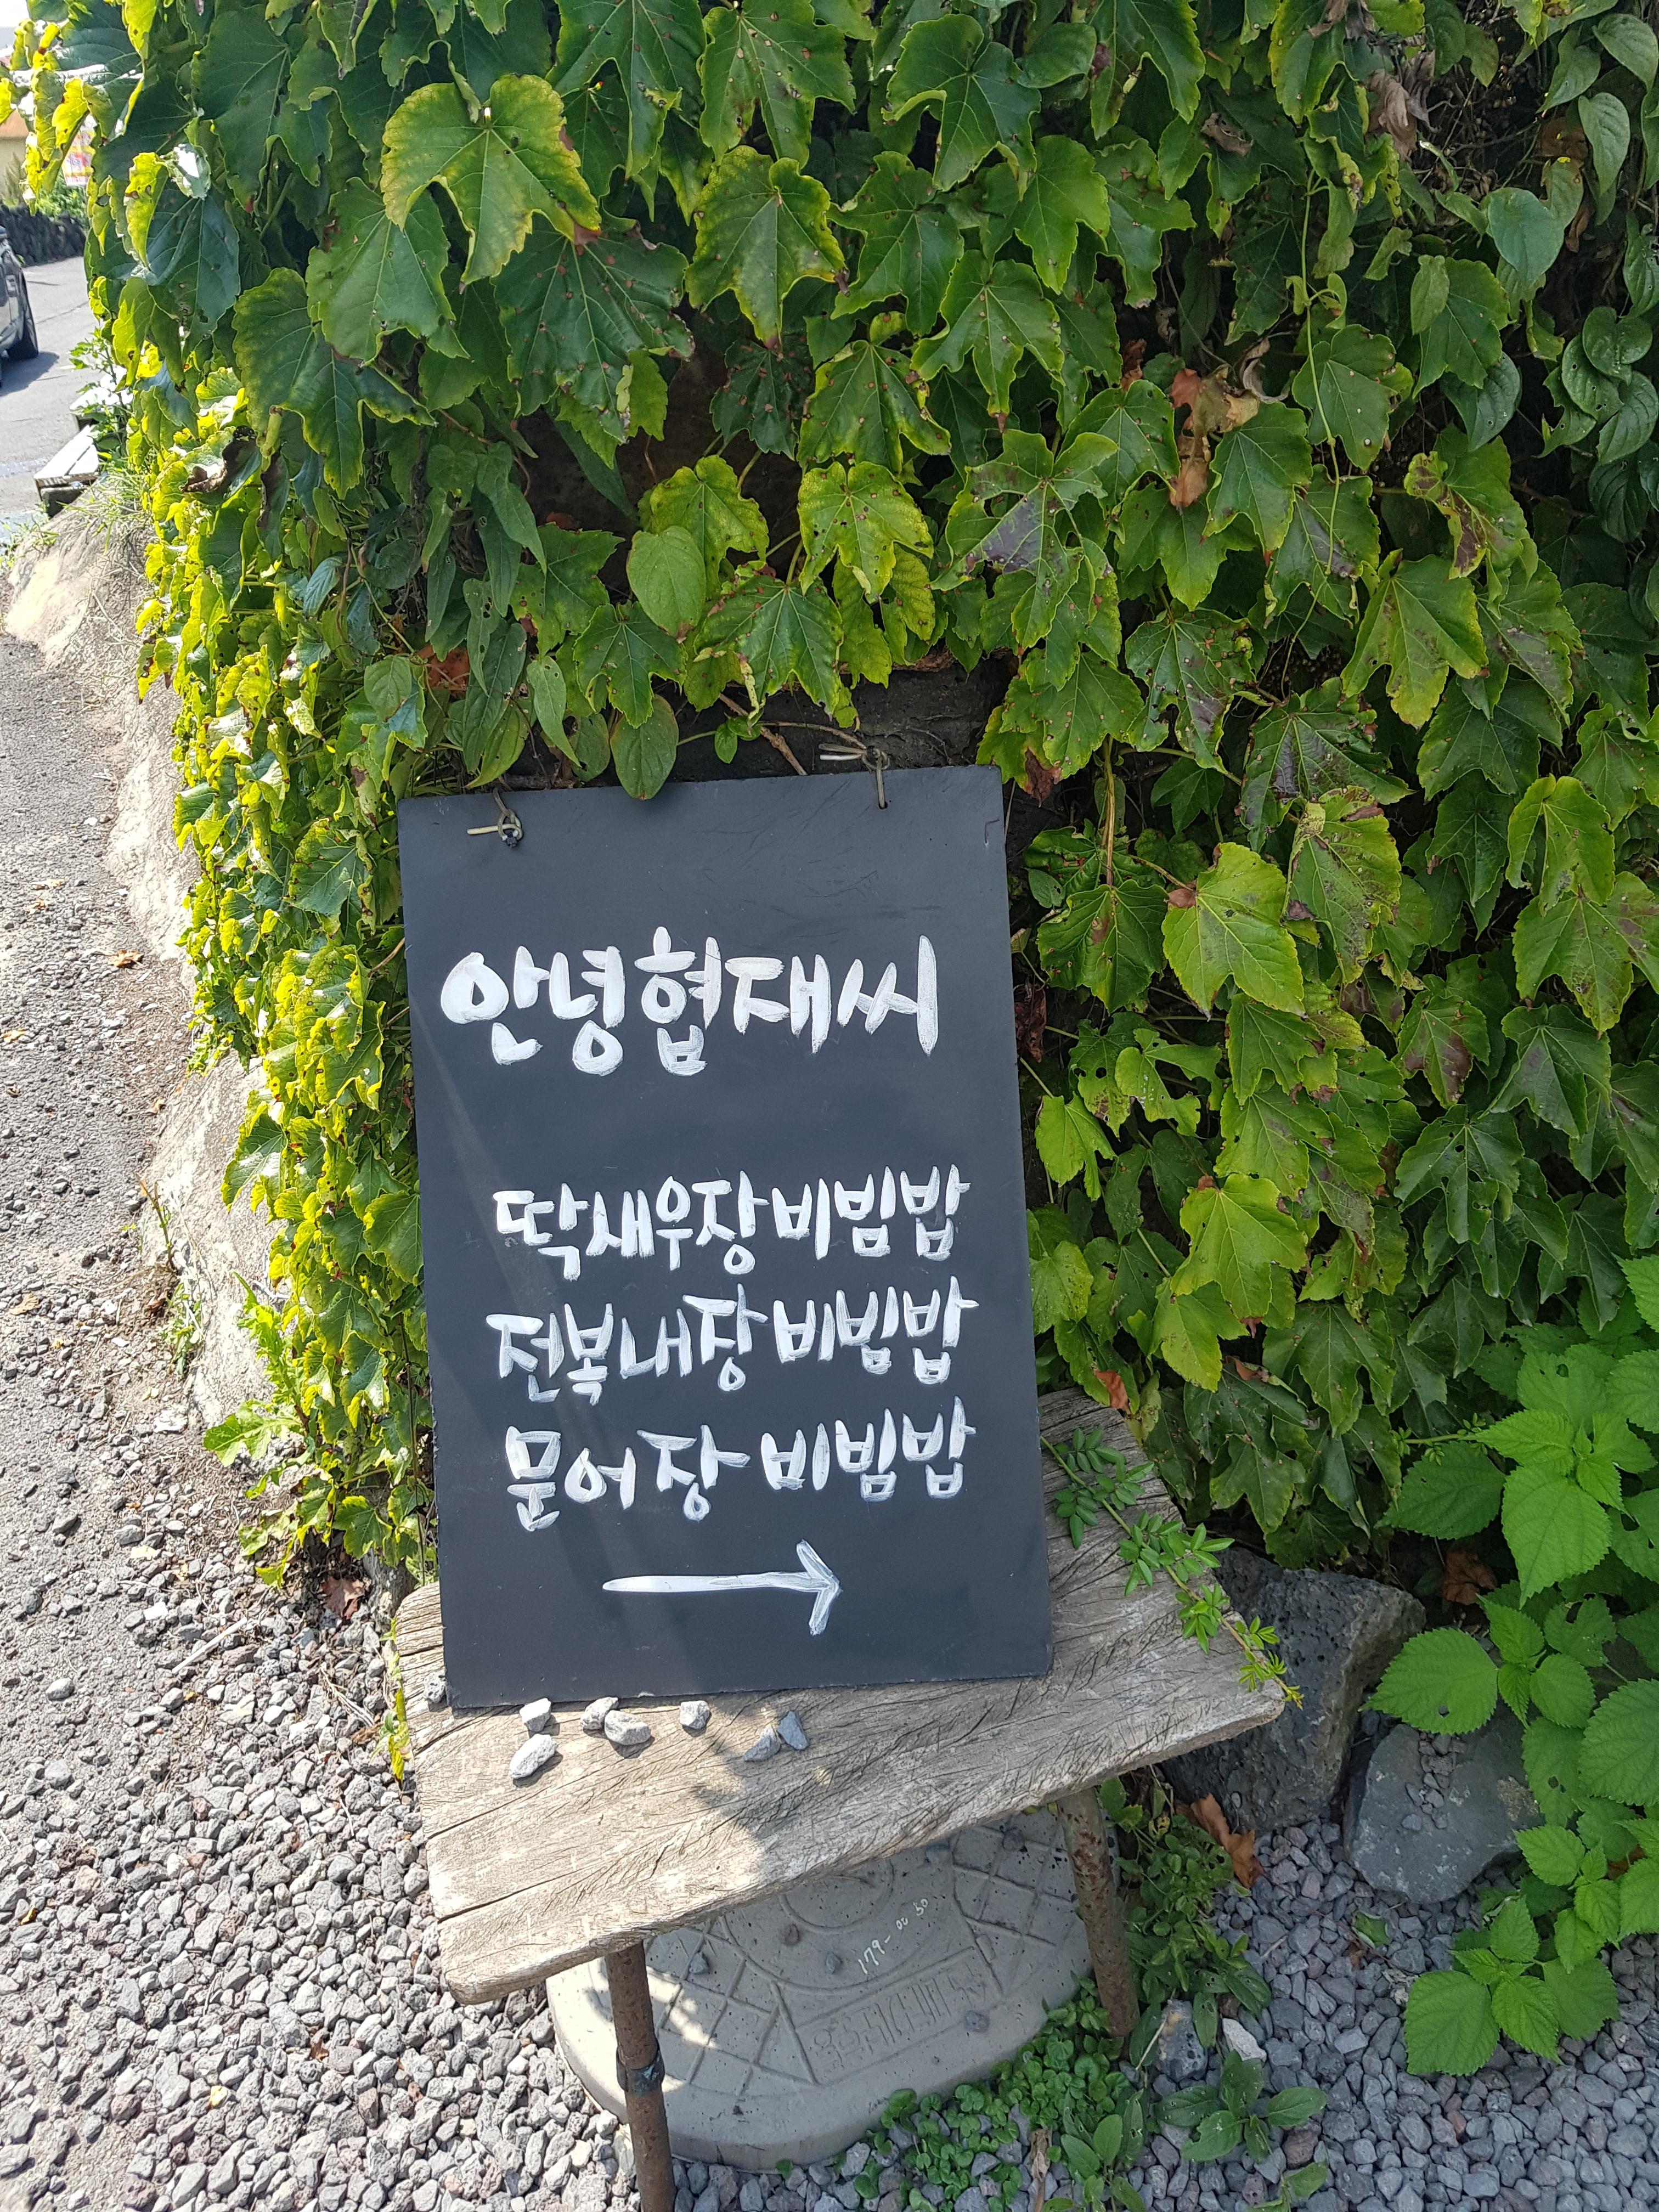 안녕협재씨
딱새우장 비빔밥
전복내장 비빔밥
문어장 비빔밥
→
179-0030